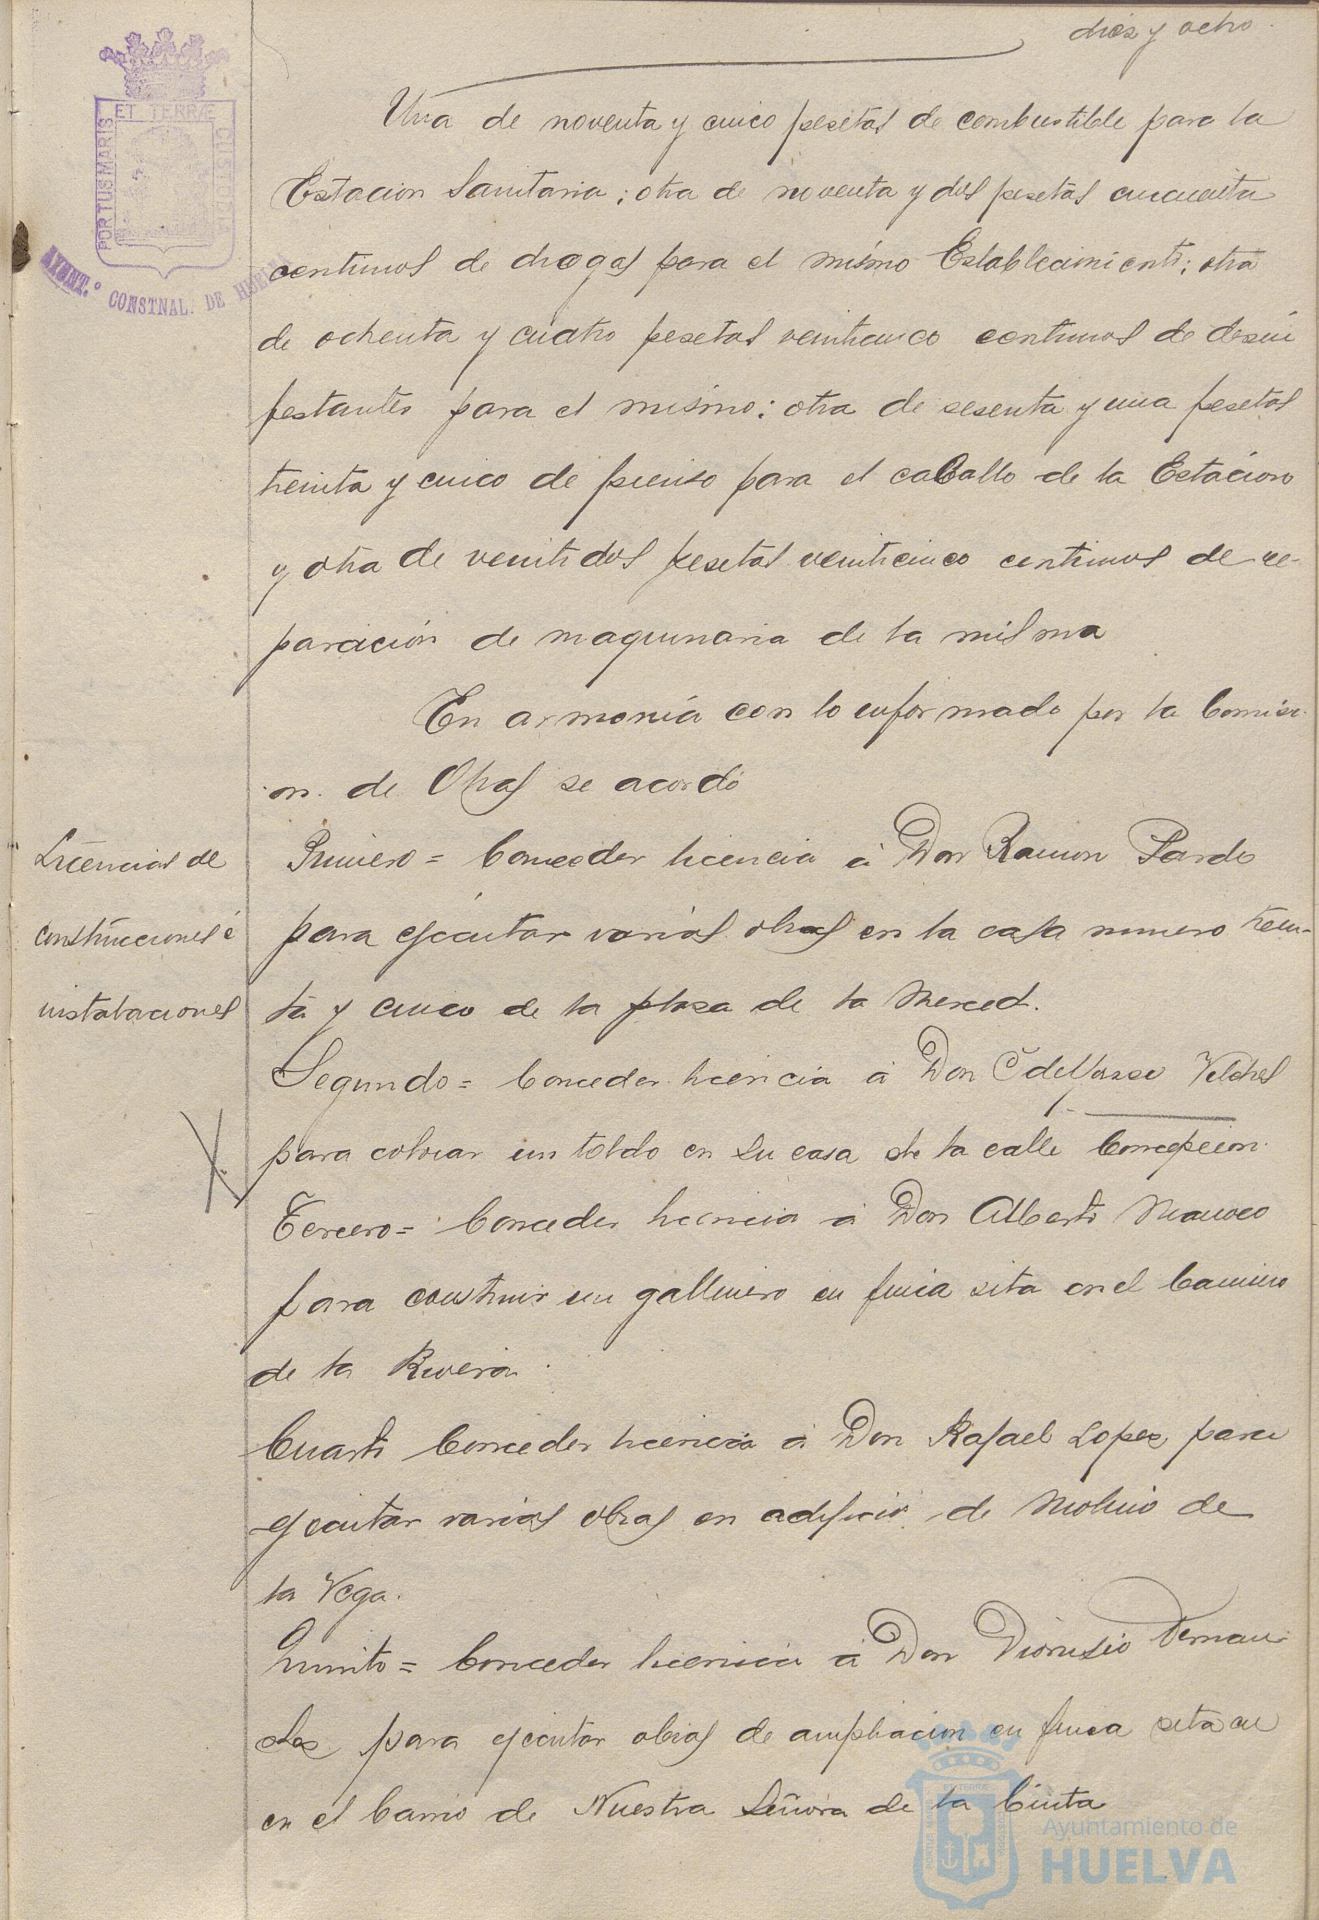 diez y ocho
Una de noventa y cinco pesetas de combustible para la
Estacion Sanitaria; otra de noventa y dos pesetas cincuenta
centimos de drogas para el mismo Establecimiento; otra
de ochenta y cuatro pesetas veinticinco centimos de desin
fectantes para el mismo; otra de sesenta y una pesetas
treinta y cinco de pienso para el caballo de la Estacion
y otra de veintidos pesetas veinticinco centimos de re-
paración de maquinaria de la misma
En armonia con lo informado por la Comisi-
on de Obras se acordó
Licencias de
construcciones é
instalaciones
Primero = Conceder licencia á Don Ramon Pardo
para ejecutar varias obras en la casa numero trein-
ta y cinco de la plaza de la Merced.
Segundo = Conceder licencia á Don Vilches
para colocar un toldo en su casa de la calle Concepcion.
Tercero = Conceder licencia á Don Alberto
para construir un gallinero en finca sita en el Camino
de la Rivera.
Cuarto Conceder licencia á Don Rafael Lopez para
ejecutar varias obras en edificio de Molino de
la Vega.
Quinto = Conceder licencia á Don Dionisio Fernan-
dez para ejecutar obras de ampliacion en finca sita en
en el barrio de Nuestra Señora de la Cinta
PORTUS MARIS ET TERRÆ CUSTODIA
AYUNT.º CONSTNAL. DE HUELVA
Ayuntamiento de
HUELVA